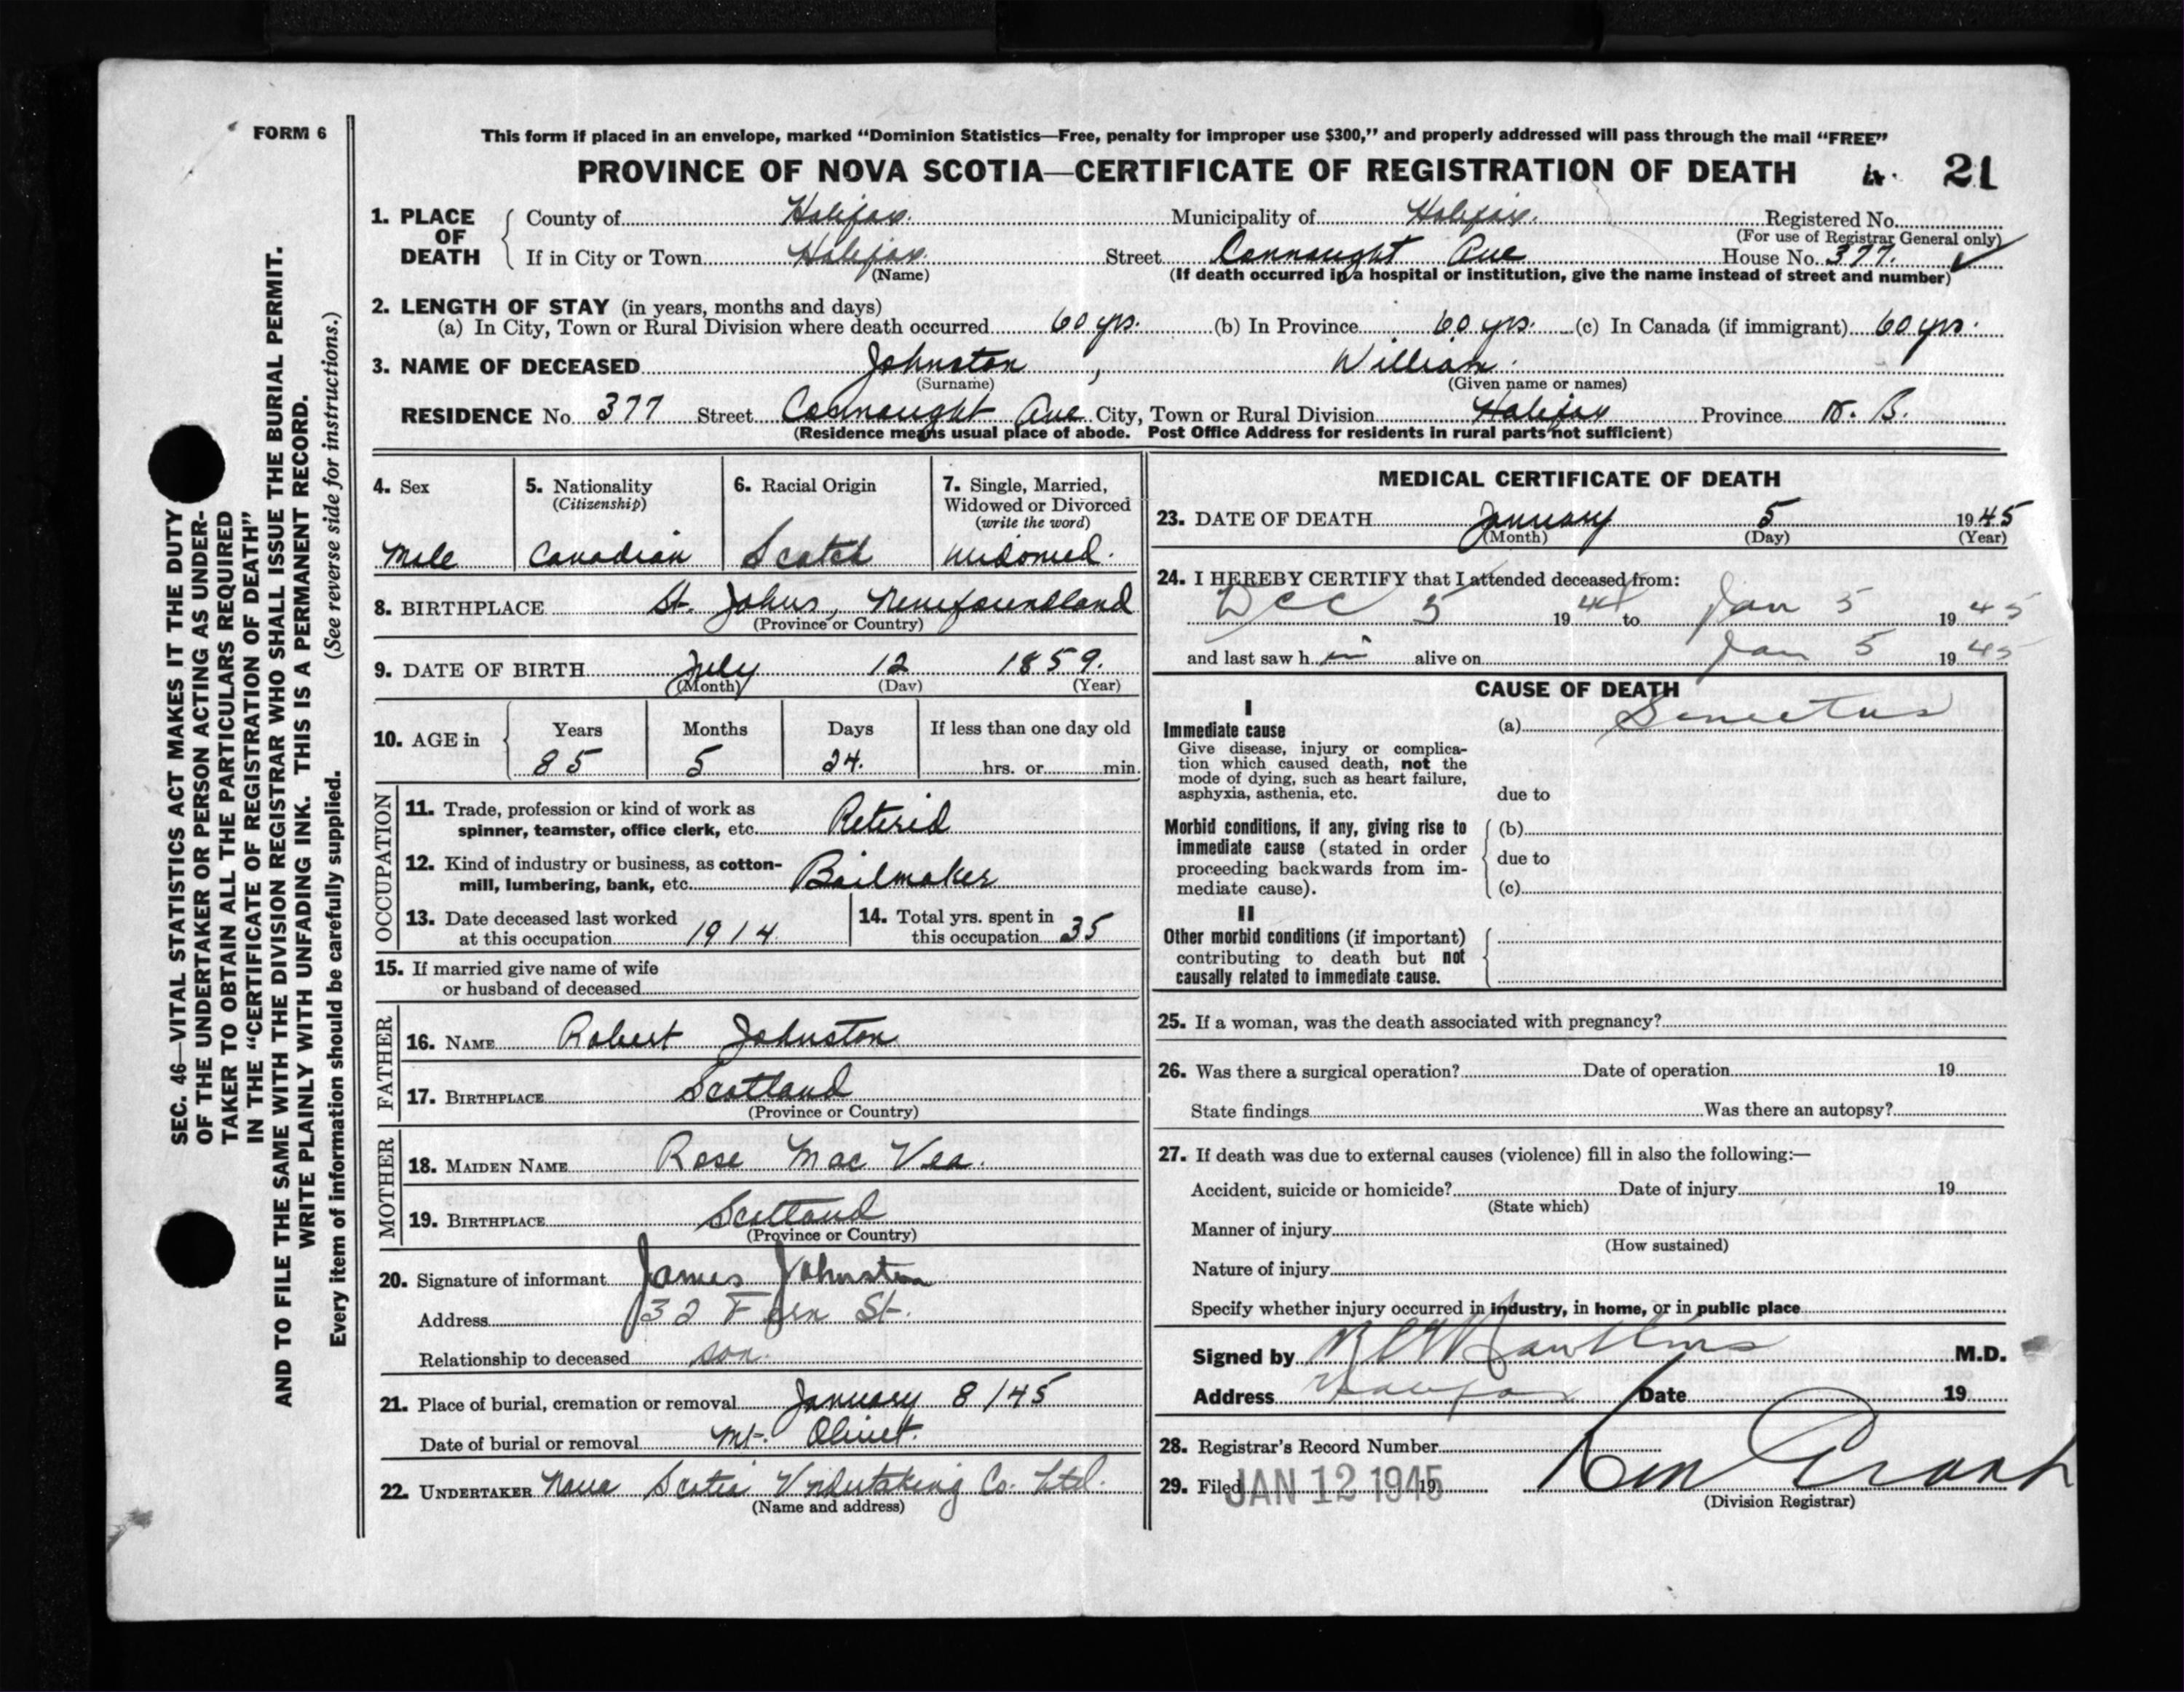 FORM 6
This form if placed in an envelope, marked “Dominion Statistics—Free, penalty for improper use $300,” and properly addressed will pass through the mail “FREE”
PROVINCE OF NOVA SCOTIA—CERTIFICATE OF REGISTRATION OF DEATH 21
1. PLACE OF DEATH County of Halifax. Municipality of Halifax. Registered No.
(For use of Registrar General only)
If in City or Town Halifax. Street Connaught Ave House No. 377.
(Name) (If death occurred in a hospital or institution, give the name instead of street and number)
2. LENGTH OF STAY (in years, months and days)
(a) In City, Town or Rural Division where death occurred 60 yrs. (b) In Province 60 yrs. (c) In Canada (if immigrant) 60 yrs.
3. NAME OF DECEASED Johnston, William.
(Surname) (Given name or names)
RESIDENCE No. 377 Street Connaught Ave City, Town or Rural Division Halifax Province N. S.
(Residence means usual place of abode. Post Office Address for residents in rural parts not sufficient)
4. Sex
Male
5. Nationality
(Citizenship)
Canadian
6. Racial Origin
Scotch
7. Single, Married,
Widowed or Divorced
(write the word)
Widowed.
8. BIRTHPLACE St. Johns, Newfoundland
(Province or Country)
9. DATE OF BIRTH July 12 1859.
(Month) (Day) (Year)
10. AGE in Years Months Days If less than one day old
85 5 24. hrs. or min.
OCCUPATION
11. Trade, profession or kind of work as
spinner, teamster, office clerk, etc. Retired
12. Kind of industry or business, as cotton-
mill, lumbering, bank, etc. Boilmaker
13. Date deceased last worked
at this occupation 1914
14. Total yrs. spent in
this occupation 35
15. If married give name of wife
or husband of deceased
FATHER
16. NAME Robert Johnston
17. BIRTHPLACE Scotland
(Province or Country)
MOTHER
18. MAIDEN NAME Rose Mac Vea.
19. BIRTHPLACE Scotland
(Province or Country)
20. Signature of informant James Johnston
Address 32 Fern St.
Relationship to deceased son.
21. Place of burial, cremation or removal January 8/45
Date of burial or removal Mt. Olivet.
22. UNDERTAKER Nova Scotia Undertaking Co. Ltd.
(Name and address)
MEDICAL CERTIFICATE OF DEATH
23. DATE OF DEATH January 5 1945
(Month) (Day) (Year)
24. I HEREBY CERTIFY that I attended deceased from:
Dec 5 1944 to Jan 5 1945
and last saw h im alive on Jan 5 1945
CAUSE OF DEATH
I
Immediate cause (a) Senectus
Give disease, injury or complica-
tion which caused death, not the
mode of dying, such as heart failure,
asphyxia, asthenia, etc. due to
Morbid conditions, if any, giving rise to (b)
immediate cause (stated in order
proceeding backwards from im- due to
mediate cause). (c)
II
Other morbid conditions (if important)
contributing to death but not
causally related to immediate cause.
25. If a woman, was the death associated with pregnancy?
26. Was there a surgical operation? Date of operation 19
State findings Was there an autopsy?
27. If death was due to external causes (violence) fill in also the following:—
Accident, suicide or homicide? Date of injury 19
(State which)
Manner of injury
(How sustained)
Nature of injury
Specify whether injury occurred in industry, in home, or in public place
Signed by M.D.
Address Halifax Date 19
28. Registrar’s Record Number
29. Filed JAN 12 1945 19
(Division Registrar)
SEC. 46—VITAL STATISTICS ACT MAKES IT THE DUTY
OF THE UNDERTAKER OR PERSON ACTING AS UNDER-
TAKER TO OBTAIN ALL THE PARTICULARS REQUIRED
IN THE “CERTIFICATE OF REGISTRATION OF DEATH”
AND TO FILE THE SAME WITH THE DIVISION REGISTRAR WHO SHALL ISSUE THE BURIAL PERMIT.
WRITE PLAINLY WITH UNFADING INK. THIS IS A PERMANENT RECORD.
Every item of information should be carefully supplied. (See reverse side for instructions.)